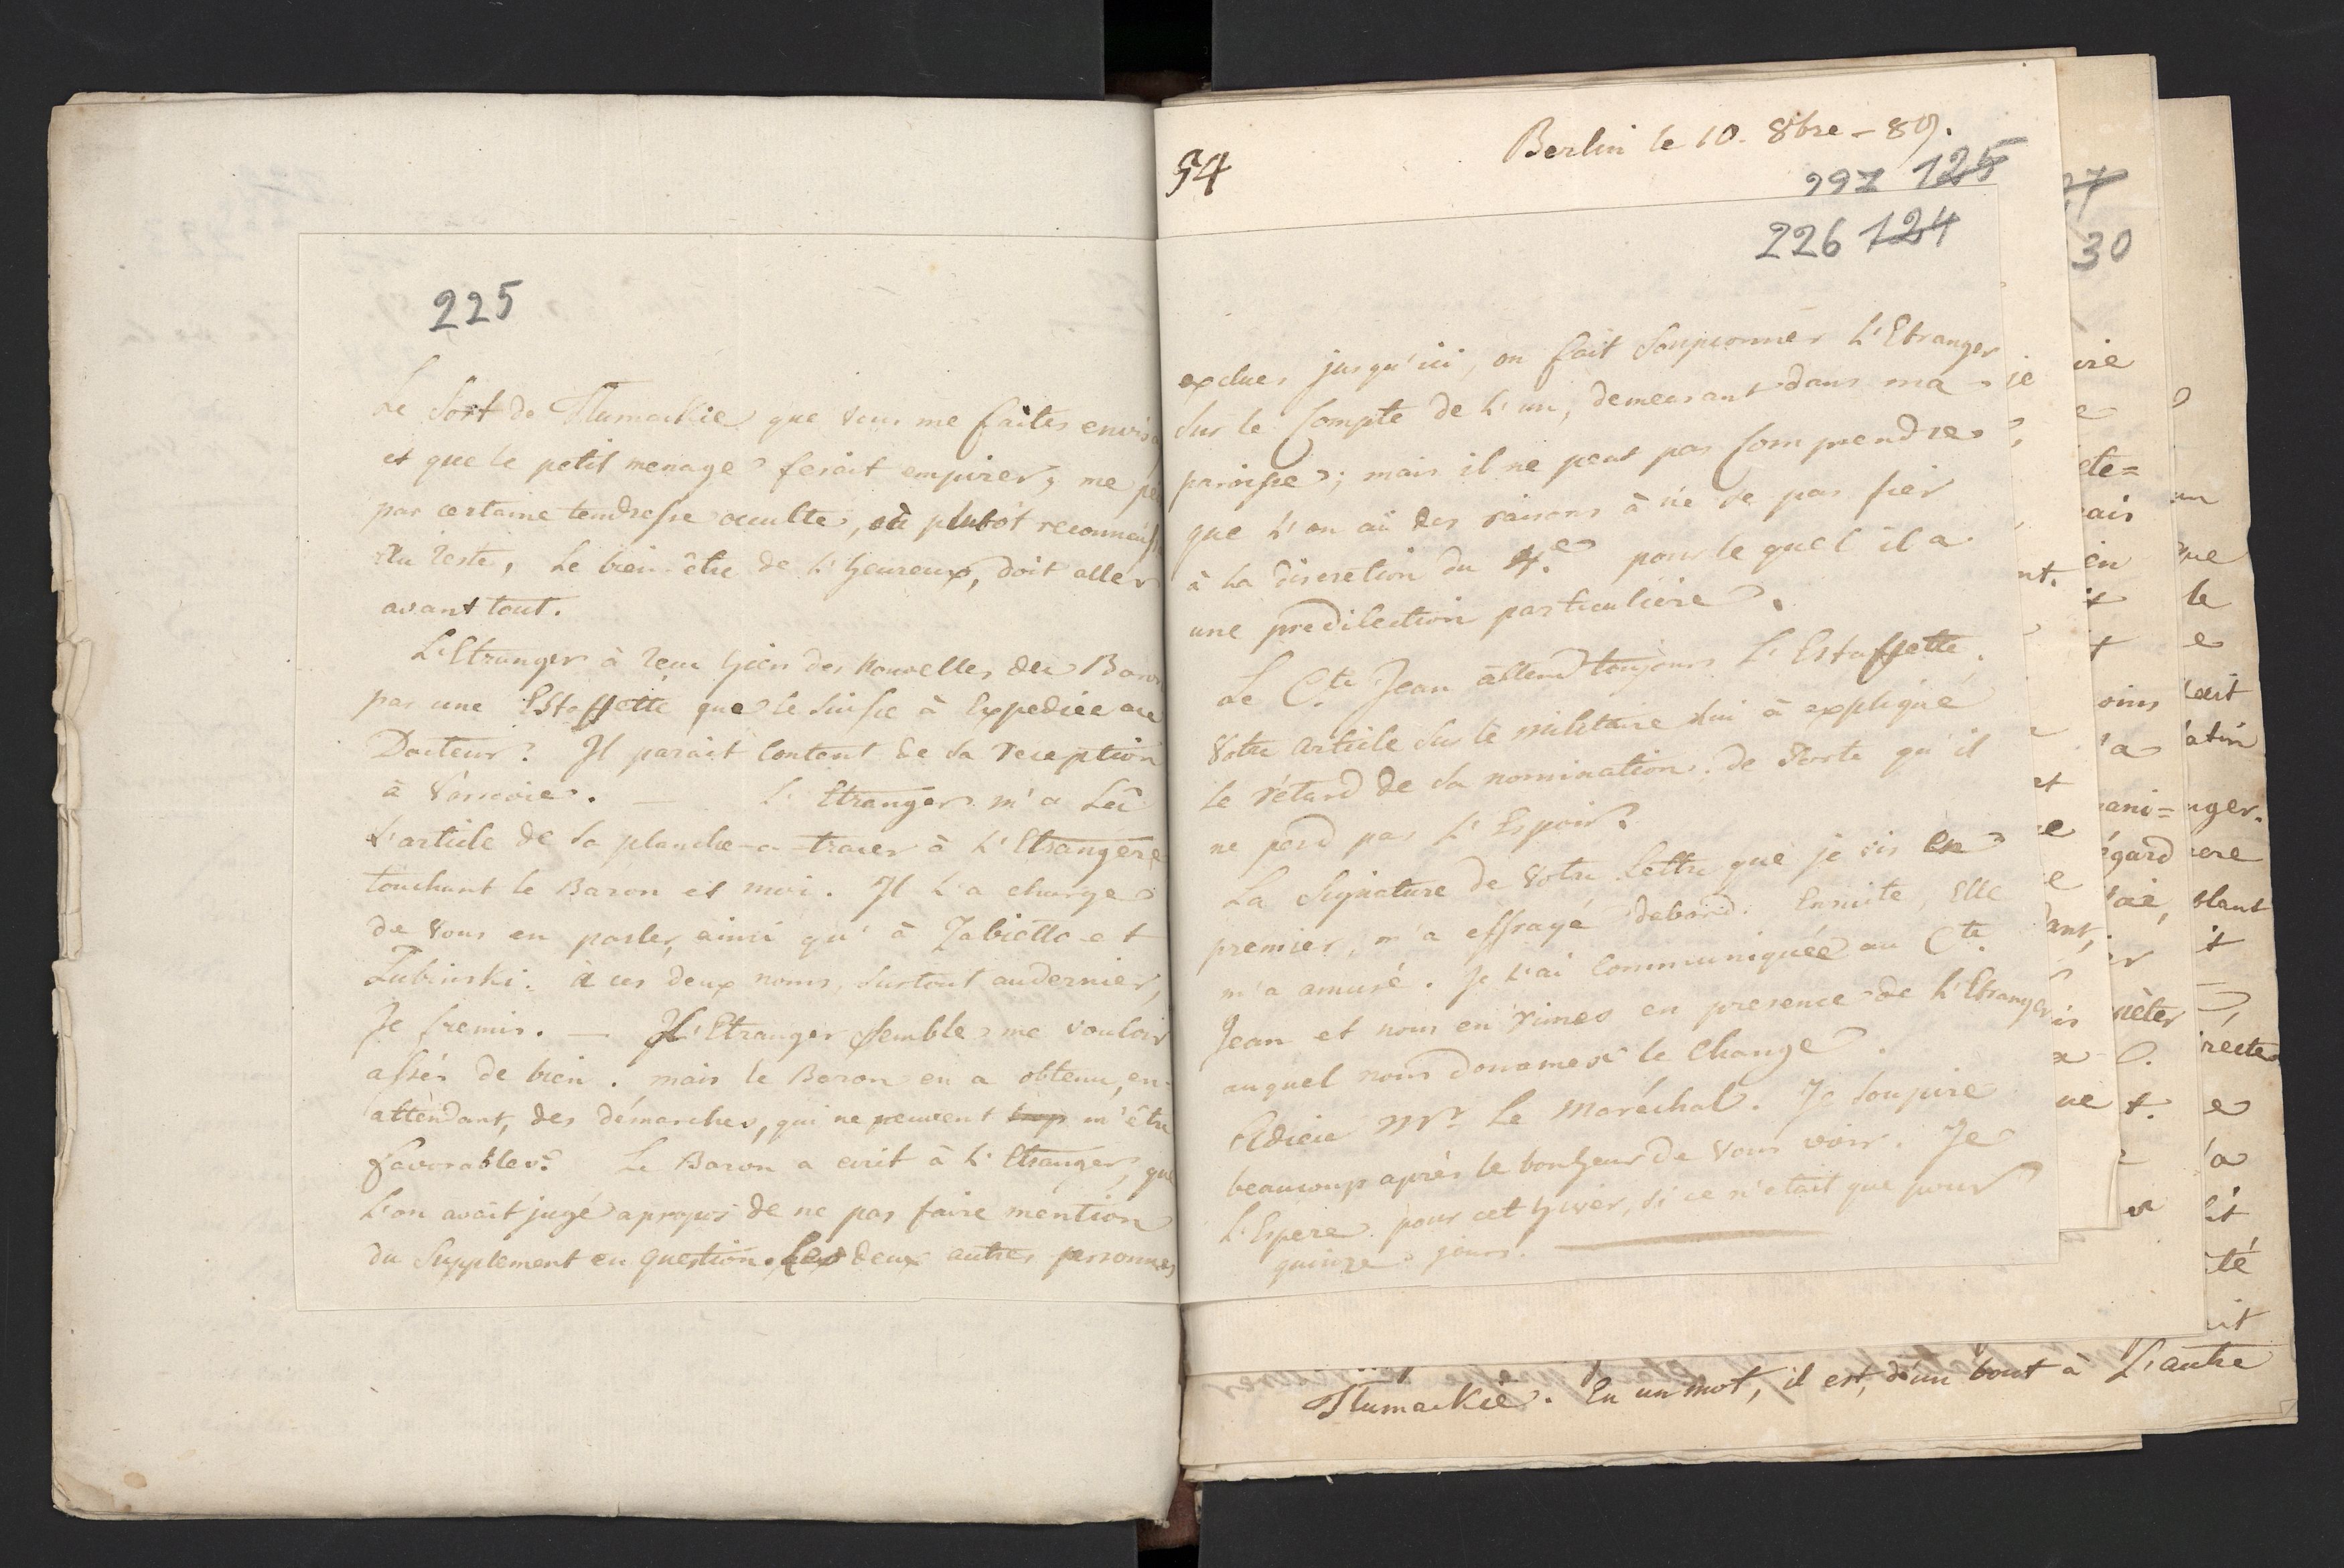 225
Le Sort de Tlumackie que vous me faites envis
et que le petit menage ferait empirer, me pe
par certaine tendresse occulte, où plutôt reconnais
Au reste, Le bien-être de L'heureux, doit aller
avant tout.
L'Etranger à reçu hier des Nouvelles du Baron
par une Estaffette que le Suisse à Expediée au
Docteur. Il parait Content de sa reception
à Varsovie. — L'Etranger m'a Lû
L'article de la planche-a-tracer à L'Etrangere
touchant le Baron et moi. Il l'a chargé
de Vous en parler, ainsi qu'à Zabiello et
Lubinski. à ces deux noms, surtout au dernier,
Je fremis. — L'Etranger semble me vouloir
assés de bien. mais le Baron en a obtenu, en-
attendant, des démarches, qui ne peuvent m'être
favorables. Le Baron a ecrit à L'Etranger, que
L'on avait jugé apropos de ne pas faire mention
du Supplement en question. Les deux autres personnes
54
Berlin le 10. 8bre - 89.
297 125
226 124
exclues jusqu'ici, on fait Soupçonner L'Etranger
Sur le Compte de L'un, demeurant dans ma
paroisse; mais il ne peut pas Comprendre
que L'on ait des raisons à ne se pas fier
à La discretion du 4.e pour lequel il a
une predilection particuliere.
Le C.te Jean attend toujours L'Estaffette.
Votre article sur le militaire lui à expliqué
le rétard de sa nomination. de Sorte qu'il
ne perd pas L'Espoir.
La Signature de Votre Lettre que je vis en
premier, m'a effrayé dabord. Ensuite, Elle
m'a amusé. Je l'ai Communiquée au C.te
Jean et nous en rimes en presence de L'Etranger
auquel nous donames le Change.
Adieu Mr. Le Maréchal. Je Soupire
beaucoup après le bonheur de Vous voir. Je
L'Espere pour cet hiver, si ce n'etait que pour
quinze jours.
Tlumackie. En un mot, il est, d'un bout à L'autre
27
30